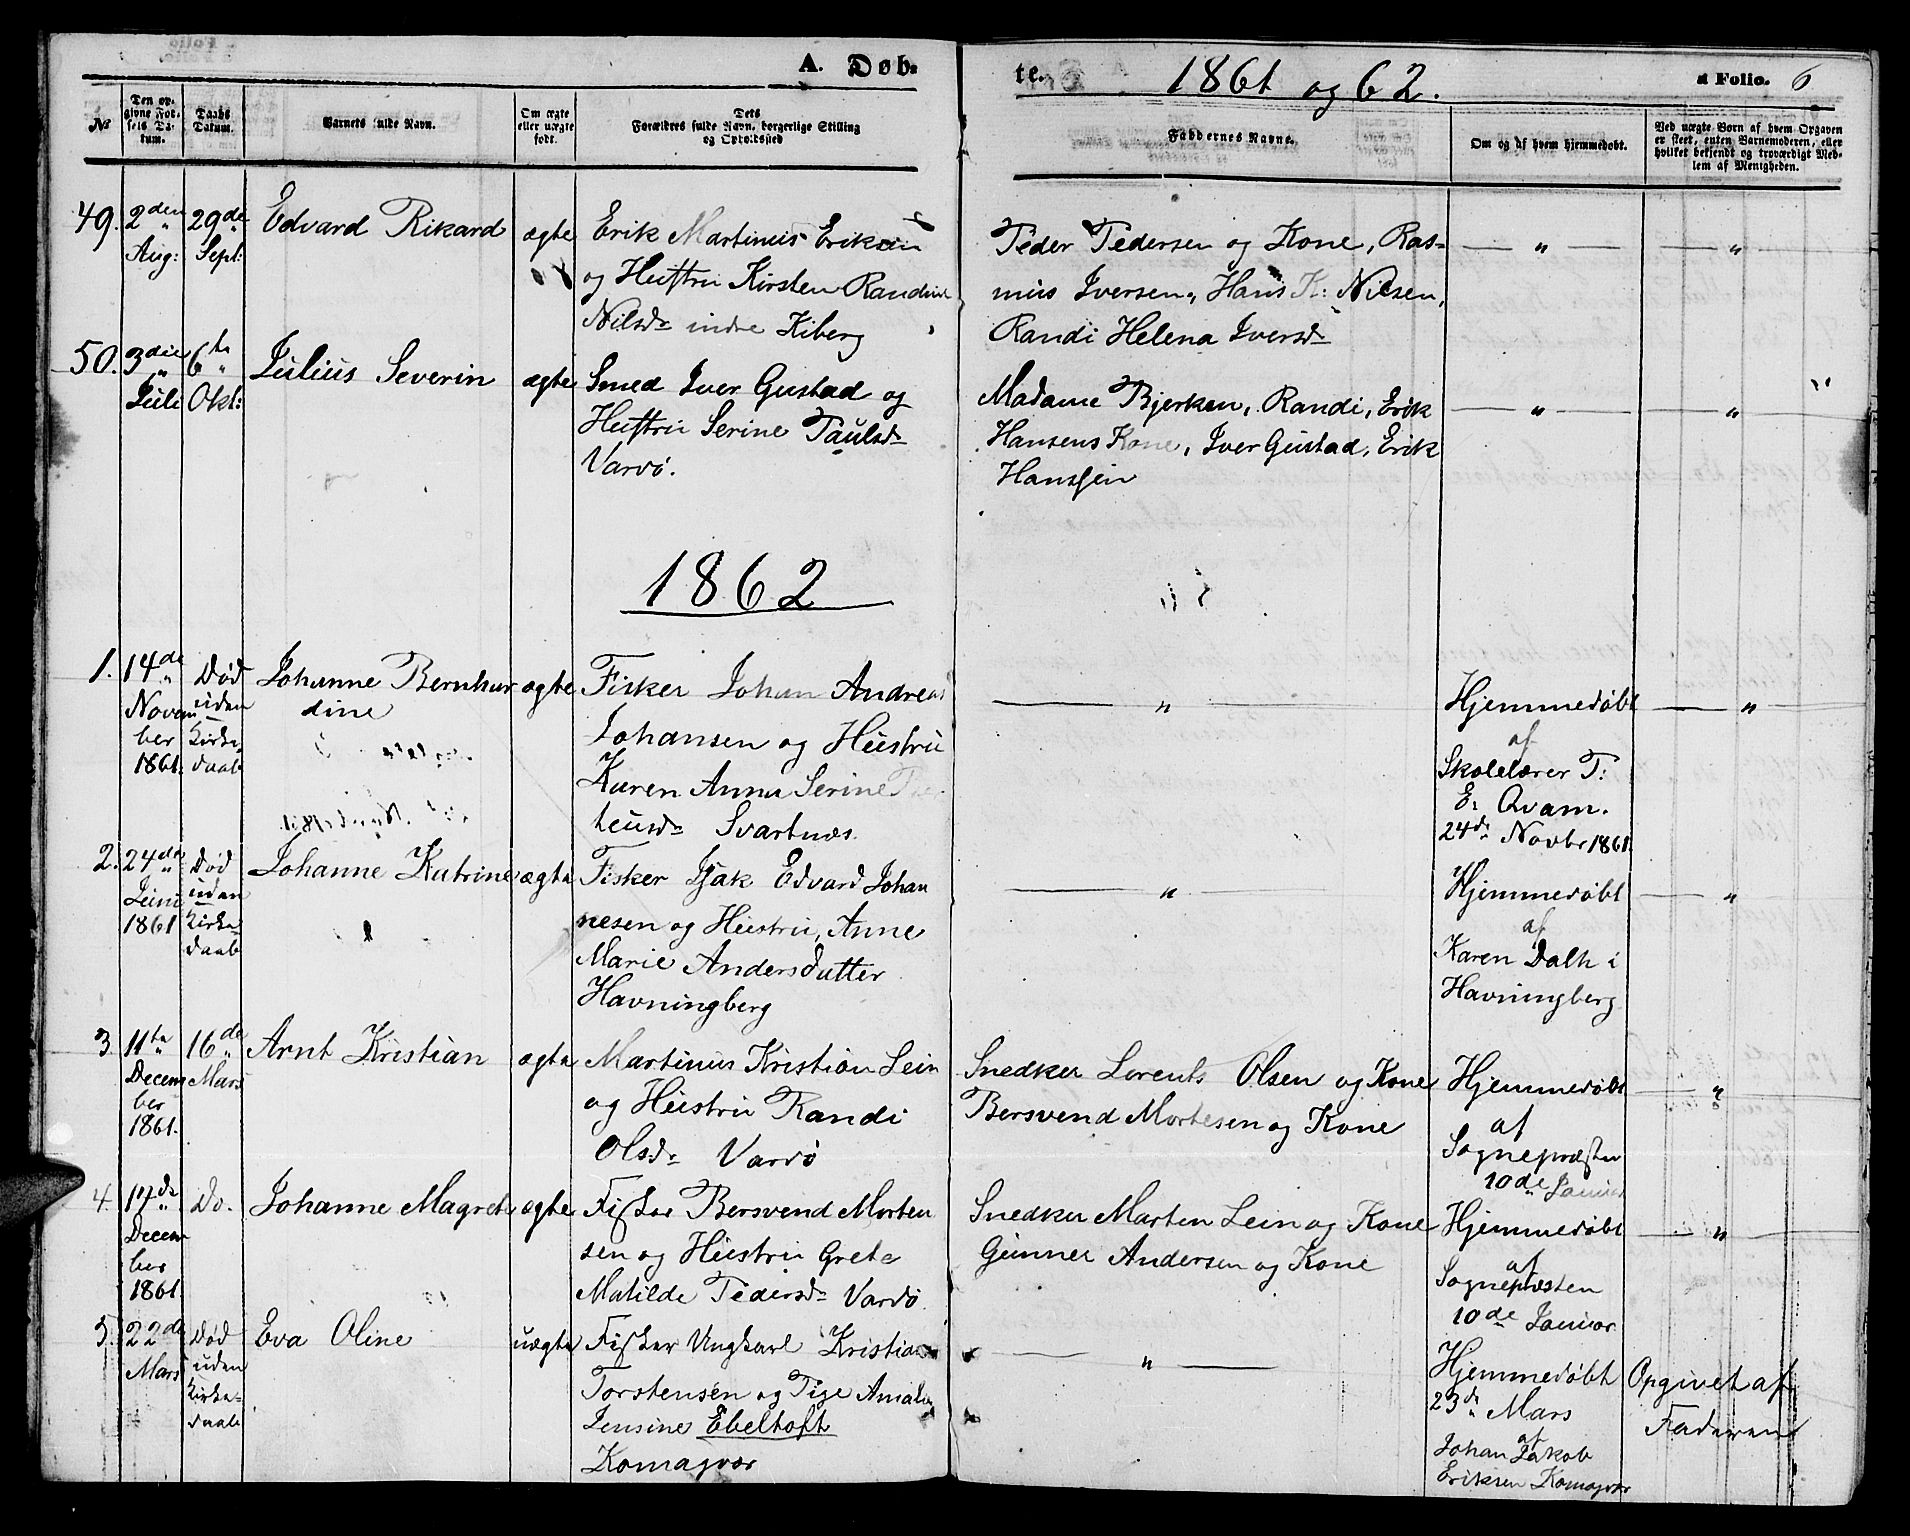 A. Døb-
te. 1861 og 62. Folio. 6
No
Den opgivne Fødsels Datum.
Daabs Datum.
Barnets fulde Navn.
Om ægte eller uægte født.
Dets Forældres fulde Navn, borgerlige Stilling og Opholdssted
Faddernes Navne.
Om og af hvem hjemmedøbt.
Ved uægte Børn af hvem Opgaven er skeet, enten Barnemoderen, eller hvilket bekjendt og troværdigt Medlem af Menigheden.
49. 2den Aug: 29de Sept: Edvard Rikard ægte
Erik Martinus Eriksen
og Hustru Kirsten Randine
Nilsd. indre Kiberg
Peder Pedersen og Kone, Ras-
mus Iversen, Hans K: Nilsen,
Randi Helena Iversd.
— " — — " —
50. 3die Juli 6te Okt: Julius Severin ægte
Smed Iver Gustad og
Hustru Serine Paulsd.
Vardø.
Madame Bjerken, Randi, Erik
Hansens Kone, Iver Gustad, Erik
Hanssen
— " — — " —
1862
1. 14de Novem
ber
1861.
Død
uden
Kirke-
daab
Johanne Bernhar
dine
ægte
Fisker Johan Andreas
Johansen og Hustru
Karen Anna Serine
teusd. Svartnæs.
— " —
Hjemmedøbt
af
Skolelærer T:
E. Qvam.
24de Novbr 1861.
— " —
2. 24de
Juni
1861
Død
uden
Kirke-
daab
Johanne Katrine ægte
Fisker Isak Edvard Johan
nesen og Hustru, Anne
Marie Andersdatter
Havningberg
— " —
Hjemmedøbt
af
Karen Dalh i
Havningberg
— " —
3. 11te
Decem
ber
1861.
16de
Mars
Arnt Kristian ægte
Martinus Kristian Lein
og Hustru Randi
Olsd. Vardø
Snedker Lorents Olsen og Kone
Bersvend Mortesen og Kone
Hjemmedøbt
af
Sognepræsten
10de Januar
— " —
4. 17de
Decem
ber
1861.
Do.
Johanne Magrete ægte
Fisker Bersvend Morten
sen og Hustru Grete
Matilde Pedersd. Vardø.
Snedker Marten Lein og Kone
Gunner Andersen og Kone
Hjemmedøbt
af
Sognepræsten
10de Januar
— " —
5. 22de
Mars
Død
uden
Kirke-
daab
Eva Oline uægte
Fisker Ungkarl Kristian
Torstensen og Pige Amalie
Jensine Ebeltoft
Komagvær
— " —
Hjemmedøbt
23de Mars
af
Johan Jakob
Eriksen Komagvær
Opgivet af
Faderen